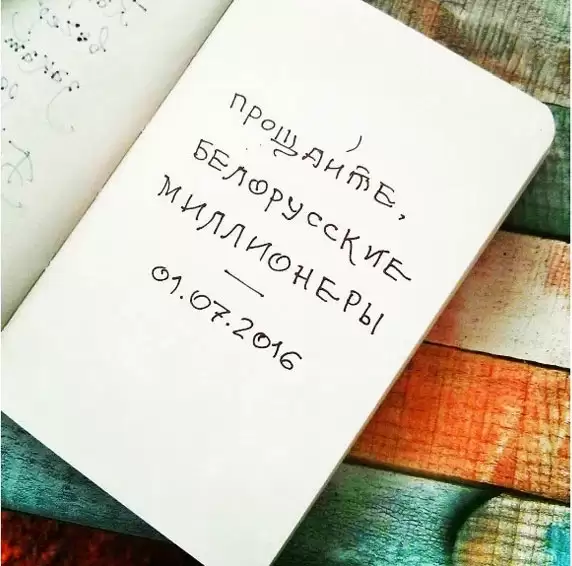 ПРОЩАЙТЕ,
БЕЛОРУССКИЕ
МИЛЛИОНЕРЫ
—
01.07.2016